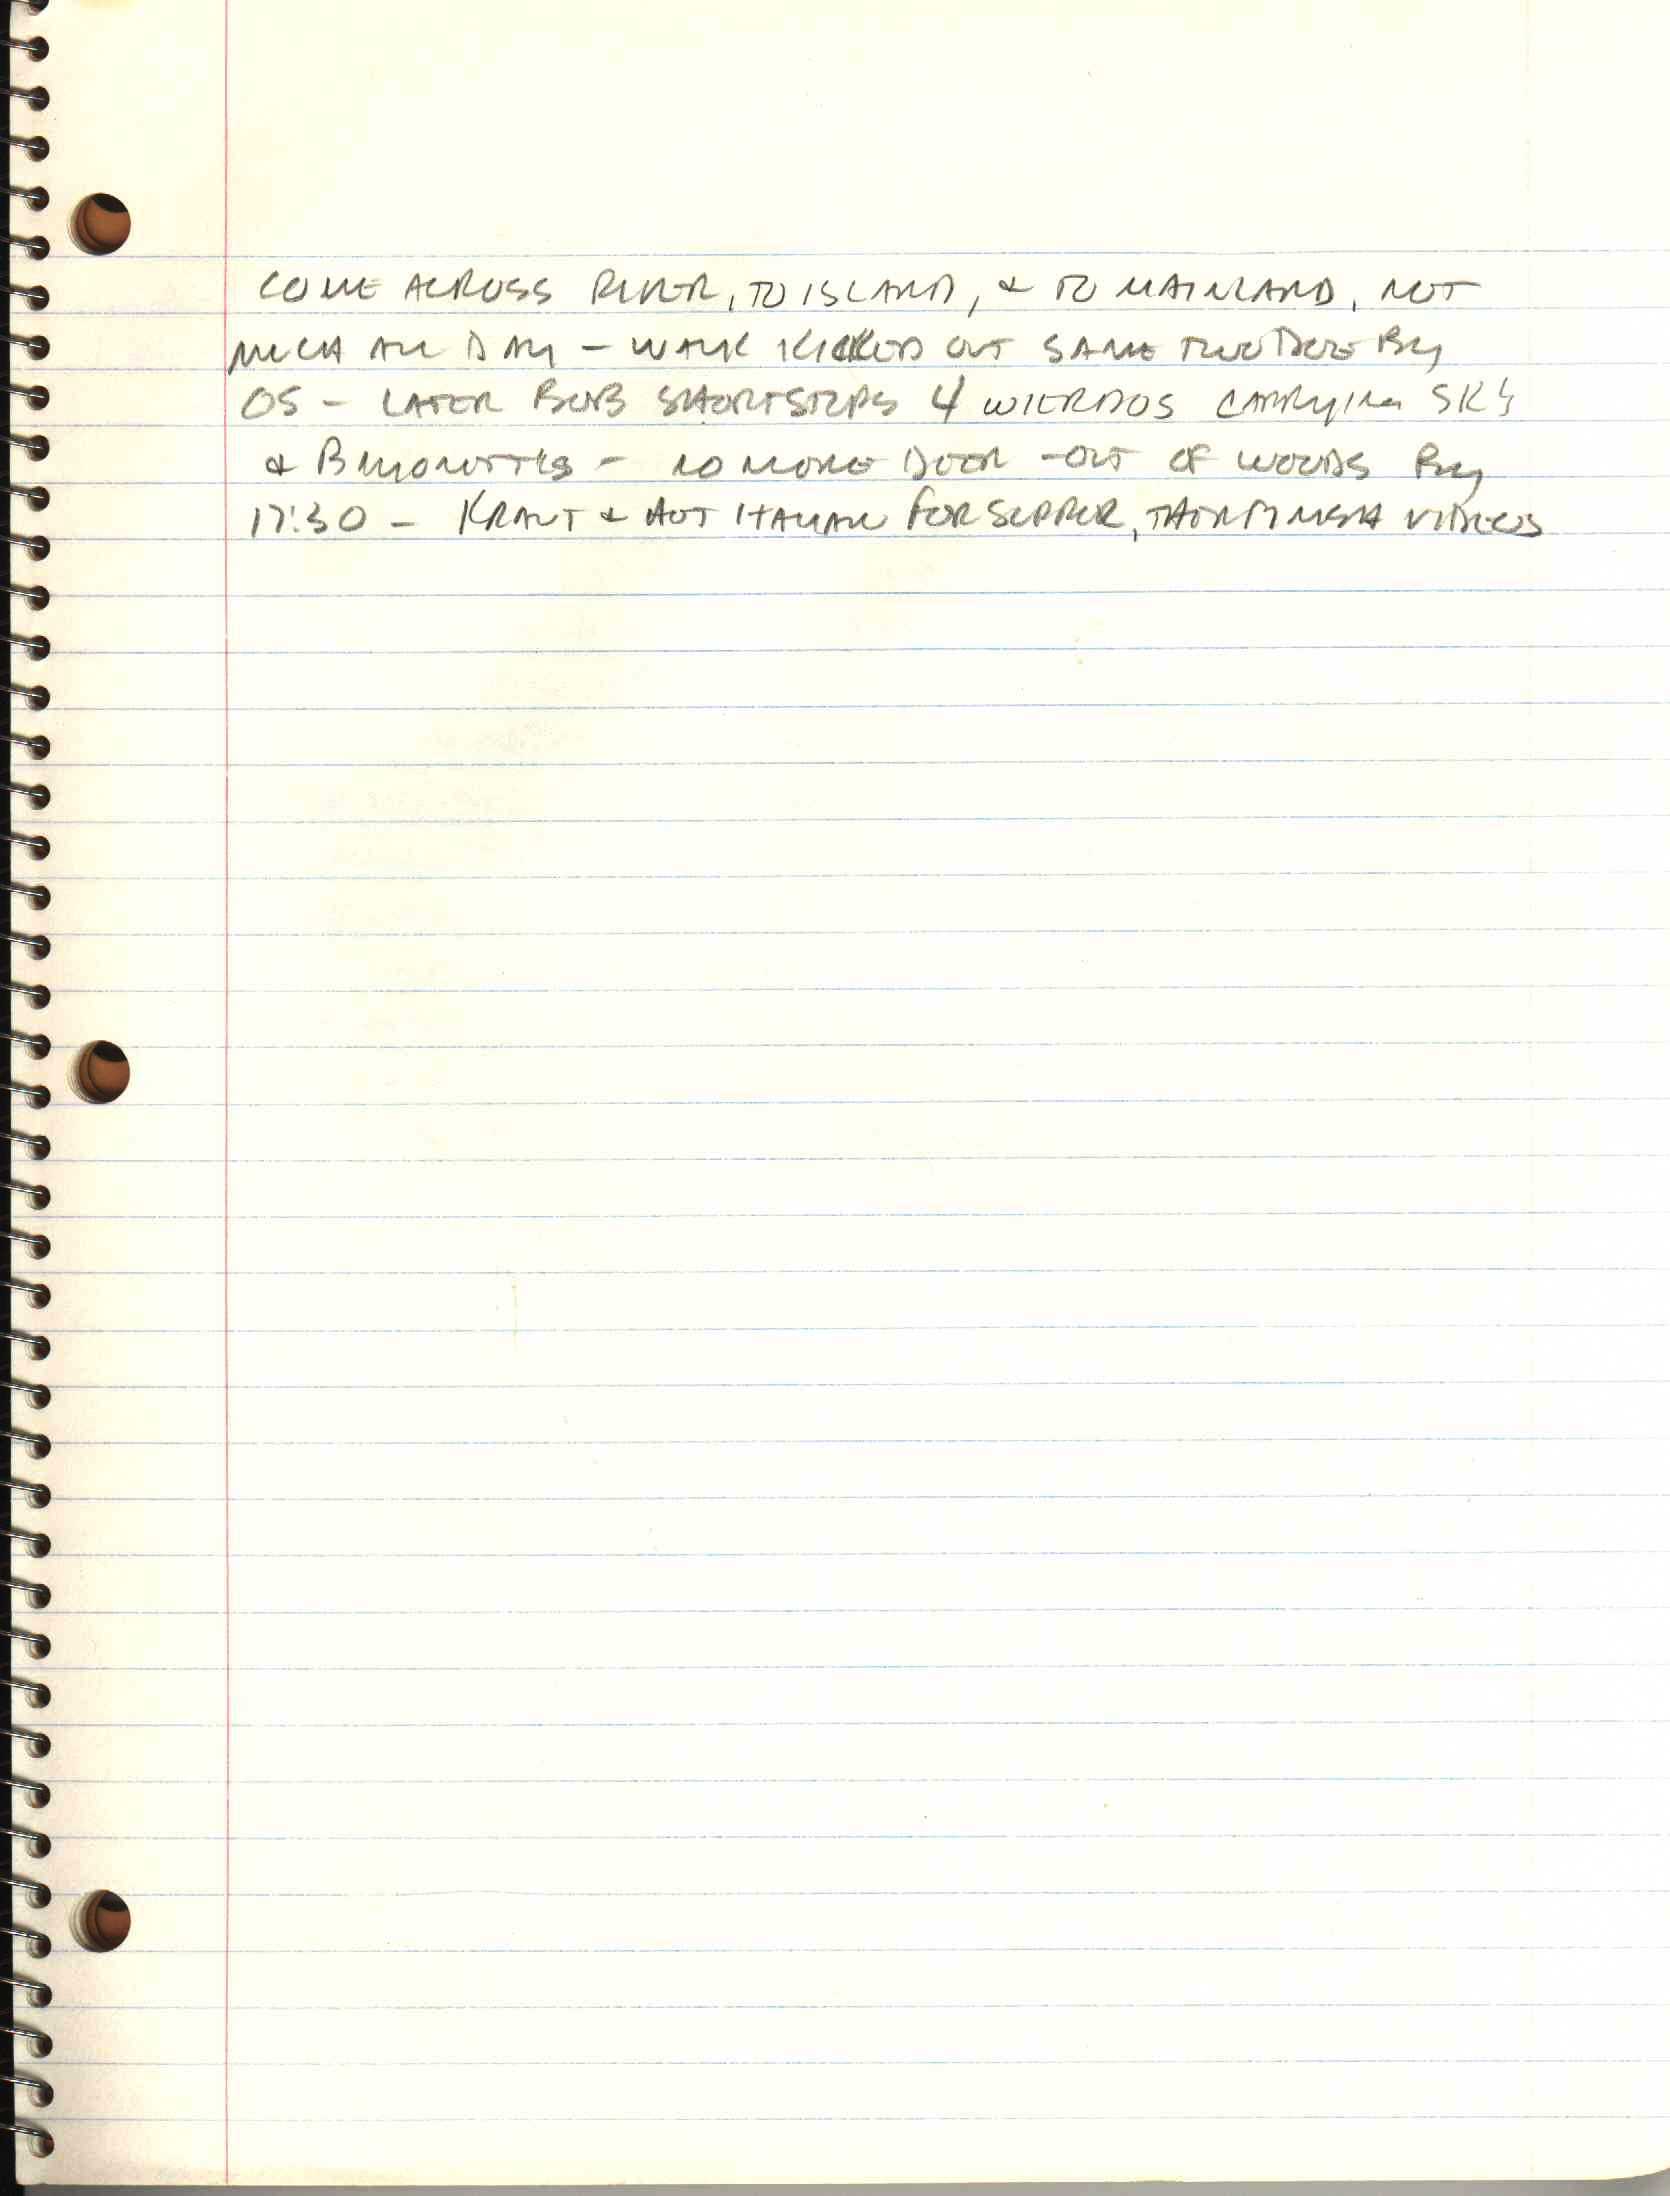 COME ACROSS RIVER, TO ISLAND, & TO MAINLAND, NOT
MUCH ALL DAY - WALK KICKED OUT SAME TWO DOE BY
OS - LATER BOB SHORTSTOPS 4 WIERDOS CARRYING SKS
& BAYONETTES - NO MORE DEER - OUT OF WOODS BY
17:30 - KRAUT & HOT ITALIAN FOR SUPPER, VIDEOS